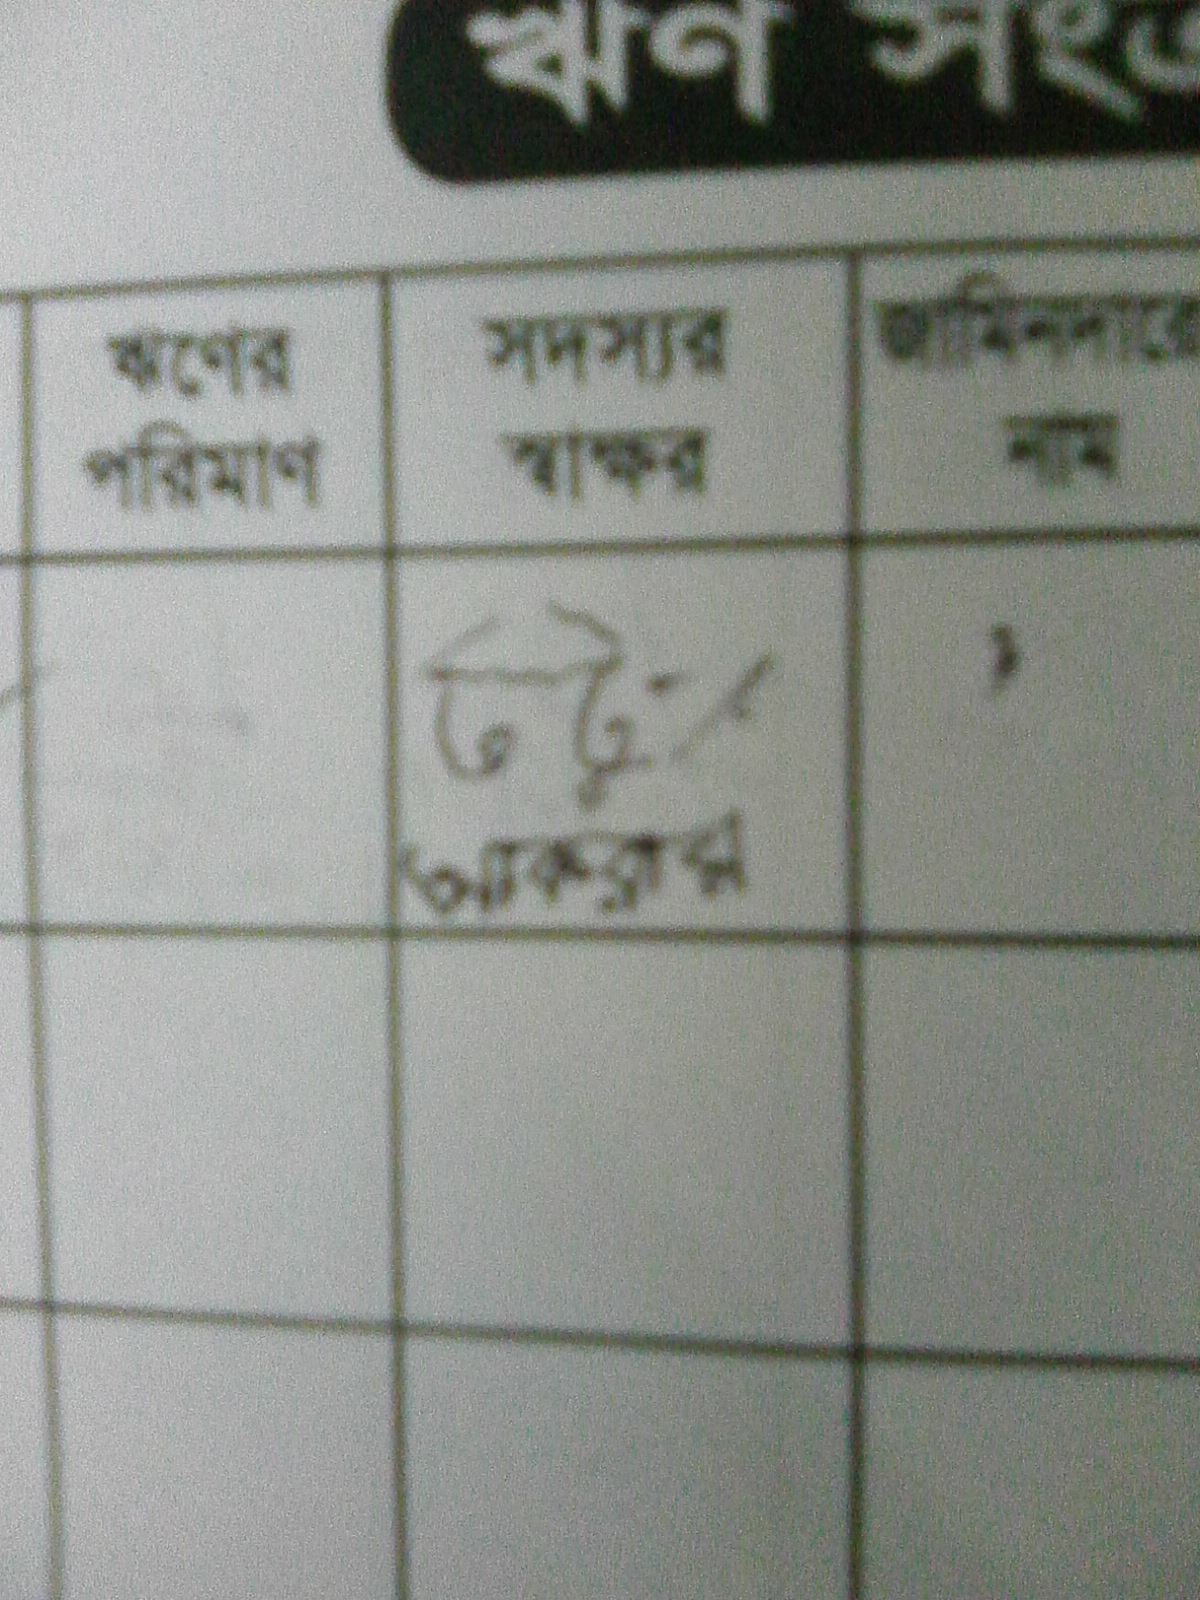 ঋণ সং
ঋণের পরিমাণ
সদস্যর স্বাক্ষর
জামিনদারের নাম
টুটু
আকরাম